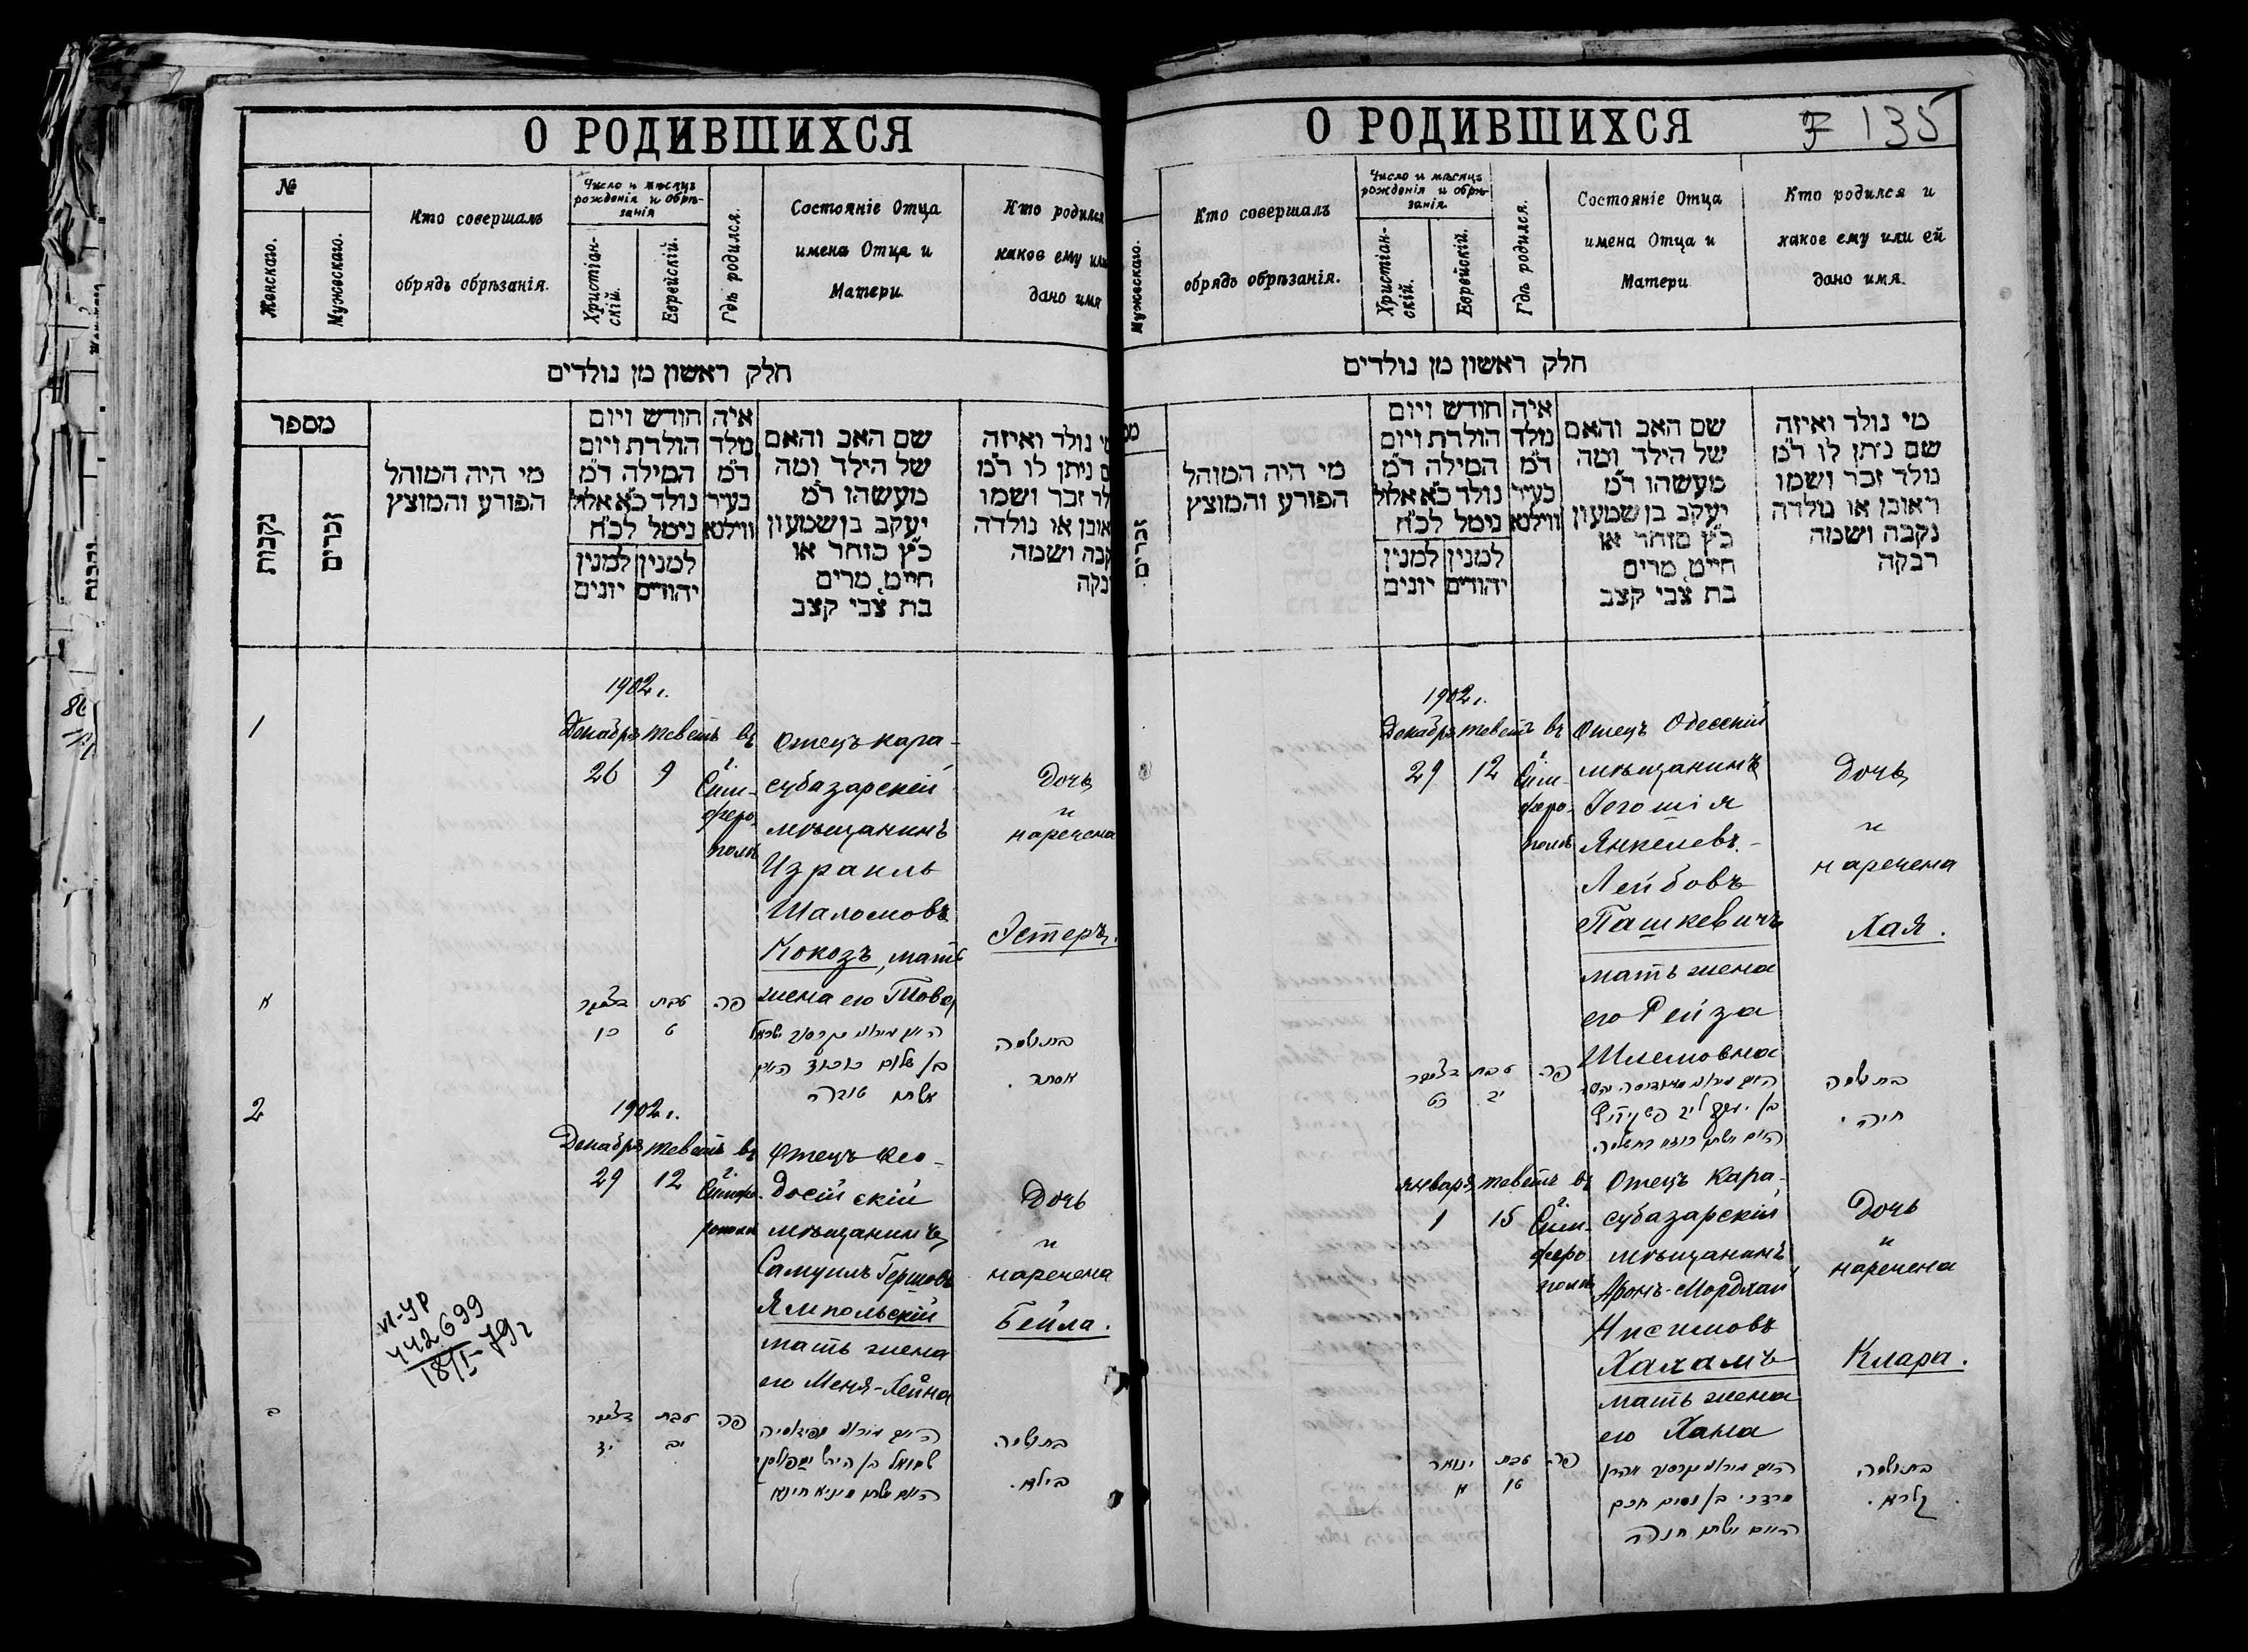 О РОДИВШИХСЯ
№
Женскаго.
Мужескаго.
Кто совершалъ
обрядъ обрѣзанія.
Число и мѣсяцъ
рожденія и обрѣ-
занія
Христіан-
скій.
Еврейскій.
Гдѣ родился.
Состояніе Отца
имена Отца и
Матери
Кто родился
какое ему или
дано имя
חלק ראשון מן נולדים
מספר
נקבות
זכרים
מי היה המוהל
הפורע והמוצץ
חודש ויום
הולדת ויום
המילה ד״מ
נולד כ״א אלול
נימל לכ״ח
למנין למנין
יהודים יונים
איה
נולד
ד״מ
בעיר
ווילנא
שם האב והאם
של הילד ומה
מעשהו ד״מ
יעקב בן שמעון
כ״ץ סוחר או
חייט, מרים
בת צבי קצב
מי נולד ואיזה
שם ניתן לו ד״מ
נולד זכר ושמו
אובן או נולדה
קבה ושמה
1
1902 г.
Декабрь Теветъ въ
26 9 г.
Сим-
феро-
полѣ
Отецъ кара-
субазарскій
мѣщанинъ
Израиль
Шаломовъ
Кокозъ, мать
жена его Това
Дочь
и
наречена
Эстеръ.
א
דצמבר טבת פה
כו ט
בן שלום קוקוז היים
אשתו טובה
בת ושמה
אסתר.
2
1902 г.
Декабрь Теветъ въ
29 12 г.
Симфе-
рополѣ
Отецъ Ѳео-
досійскій
мѣщанинъ
Самуилъ Гершовъ
Ямпольскій
мать жена
его Меня-Хейна
Дочь
и
наречена
Бейла.
VI-УР
442699
18/I-79г
ב
דצמבר טבת פה
יב
שמואל בן הירש יאמפולסקי
בת ושמה
בילא.
О РОДИВШИХСЯ
135
Мужескаго.
Кто совершалъ
обрядъ обрѣзанія.
Число и мѣсяцъ
рожденія и обрѣ-
занія.
Христіан-
скій.
Еврейскій.
Гдѣ родился.
Состояніе Отца
имена Отца и
Матери
Кто родился и
какое ему или ей
дано имя.
חלק ראשון מן נולדים
זכרים
מי היה המוהל
הפורע והמוצץ
חודש ויום
הולדת ויום
המילה ד״מ
נולד כ״א אלול
נימל לכ״ח
למנין למנין
יהודים יונים
איה
נולד
ד״מ
בעיר
ווילנא
שם האב והאם
של הילד ומה
מעשהו ד״מ
יעקב בן שמעון
כ״ץ סוחר או
חייט, מרים
בת צבי קצב
מי נולד ואיזה
שם ניתן לו ד״מ
נולד זכר ושמו
ראובן או נולדה
נקבה ושמה
רבקה
1902 г.
Декабрь Теветъ въ
29 12 г.
Сим-
феро-
полѣ
Отецъ Одесскій
мѣщанинъ
Іегошія
Янкелевъ-
Лейбовъ
Пашкевичъ
мать жена
его Рейза
Шлемовна
Дочь
и
наречена
Хая.
דצמבר טבת פה
כט יב
בת ושמה
חיה.
Январь Теветъ въ
1 15 г.
Сим-
феро-
полѣ
Отецъ Кара-
субазарскій
мѣщанинъ
Аронъ-Мордхай
Нисимовъ
Хахамъ
мать жена
его Хана
Дочь
и
наречена
Клара.
ינואר טבת פה
א טו
מרדכי בן נסים חכם
היים אשתו חנה
בת ושמה
קלרא.